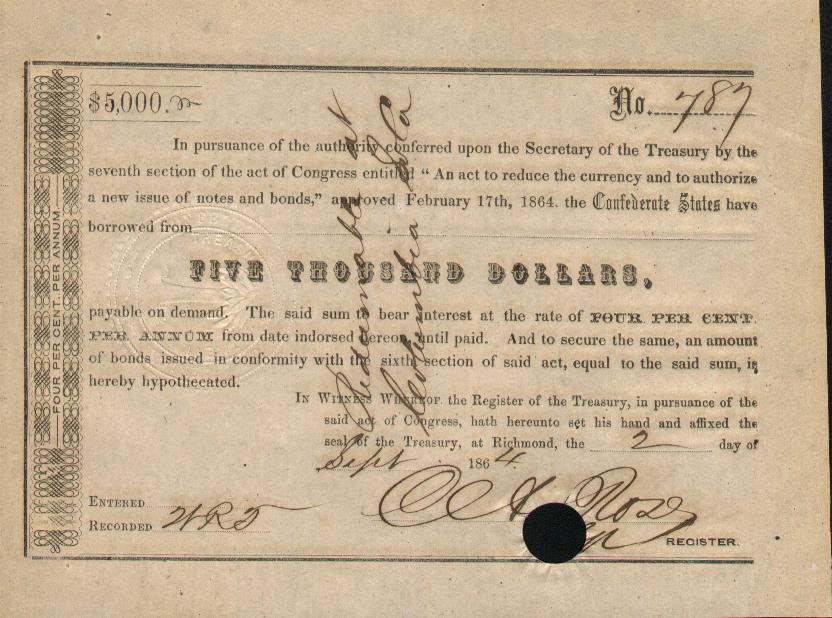 $5,000.
No. 787
In pursuance of the authority conferred upon the Secretary of the Treasury by the
seventh section of the act of Congress entitled "An act to reduce the currency and to authorize
a new issue of notes and bonds," approved February 17th, 1864. the Confederate States have
borrowed from
FIVE THOUSAND DOLLARS,
payable on demand. The said sum to bear interest at the rate of FOUR PER CENT.
PER ANNUM from date indorsed hereon until paid. And to secure the same, an amount
of bonds issued in conformity with the sixth section of said act, equal to the said sum, is
hereby hypothecated.
IN WITNESS WHEREOF. the Register of the Treasury, in pursuance of the
said act of Congress, hath hereunto set his hand and affixed the
seal of the Treasury, at Richmond, the 2 day of
Sept 1864.
ENTERED
RECORDED
REGISTER.
FOUR PER CENT. PER ANNUM
at
Columbia